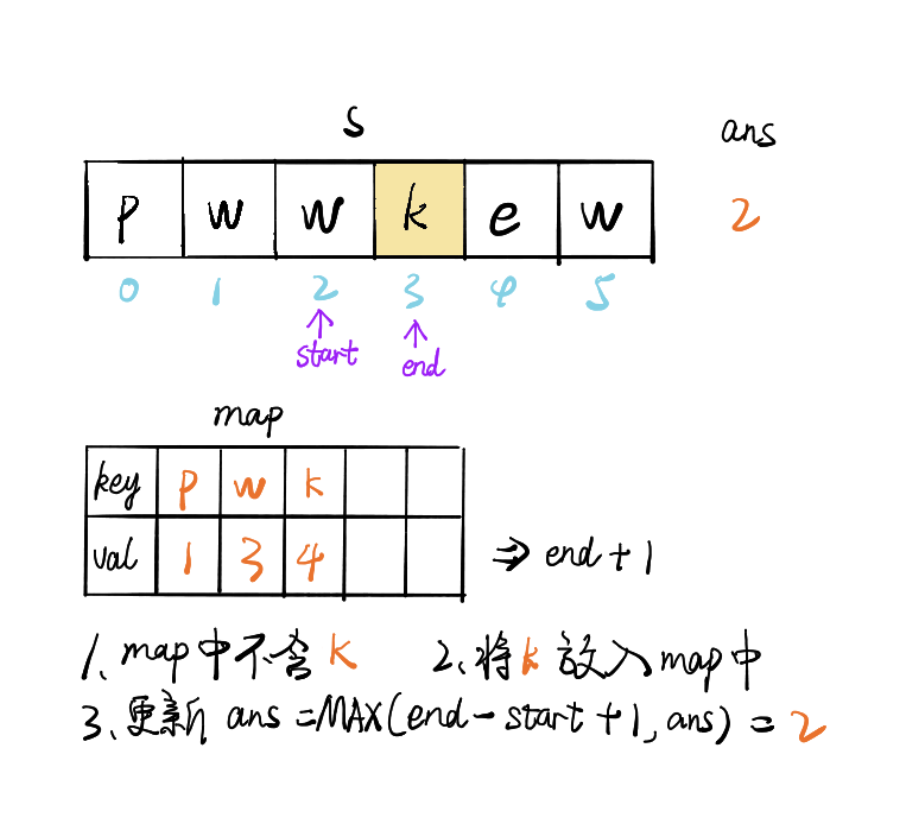 s ans
p w w k e w 2
0 1 2 3 4 5
start end
map
key p w k
val 1 3 4 ⇒ end + 1
1、map中不含k 2、将k放入map中
3、更新 ans = MAX(end - start + 1, ans) = 2